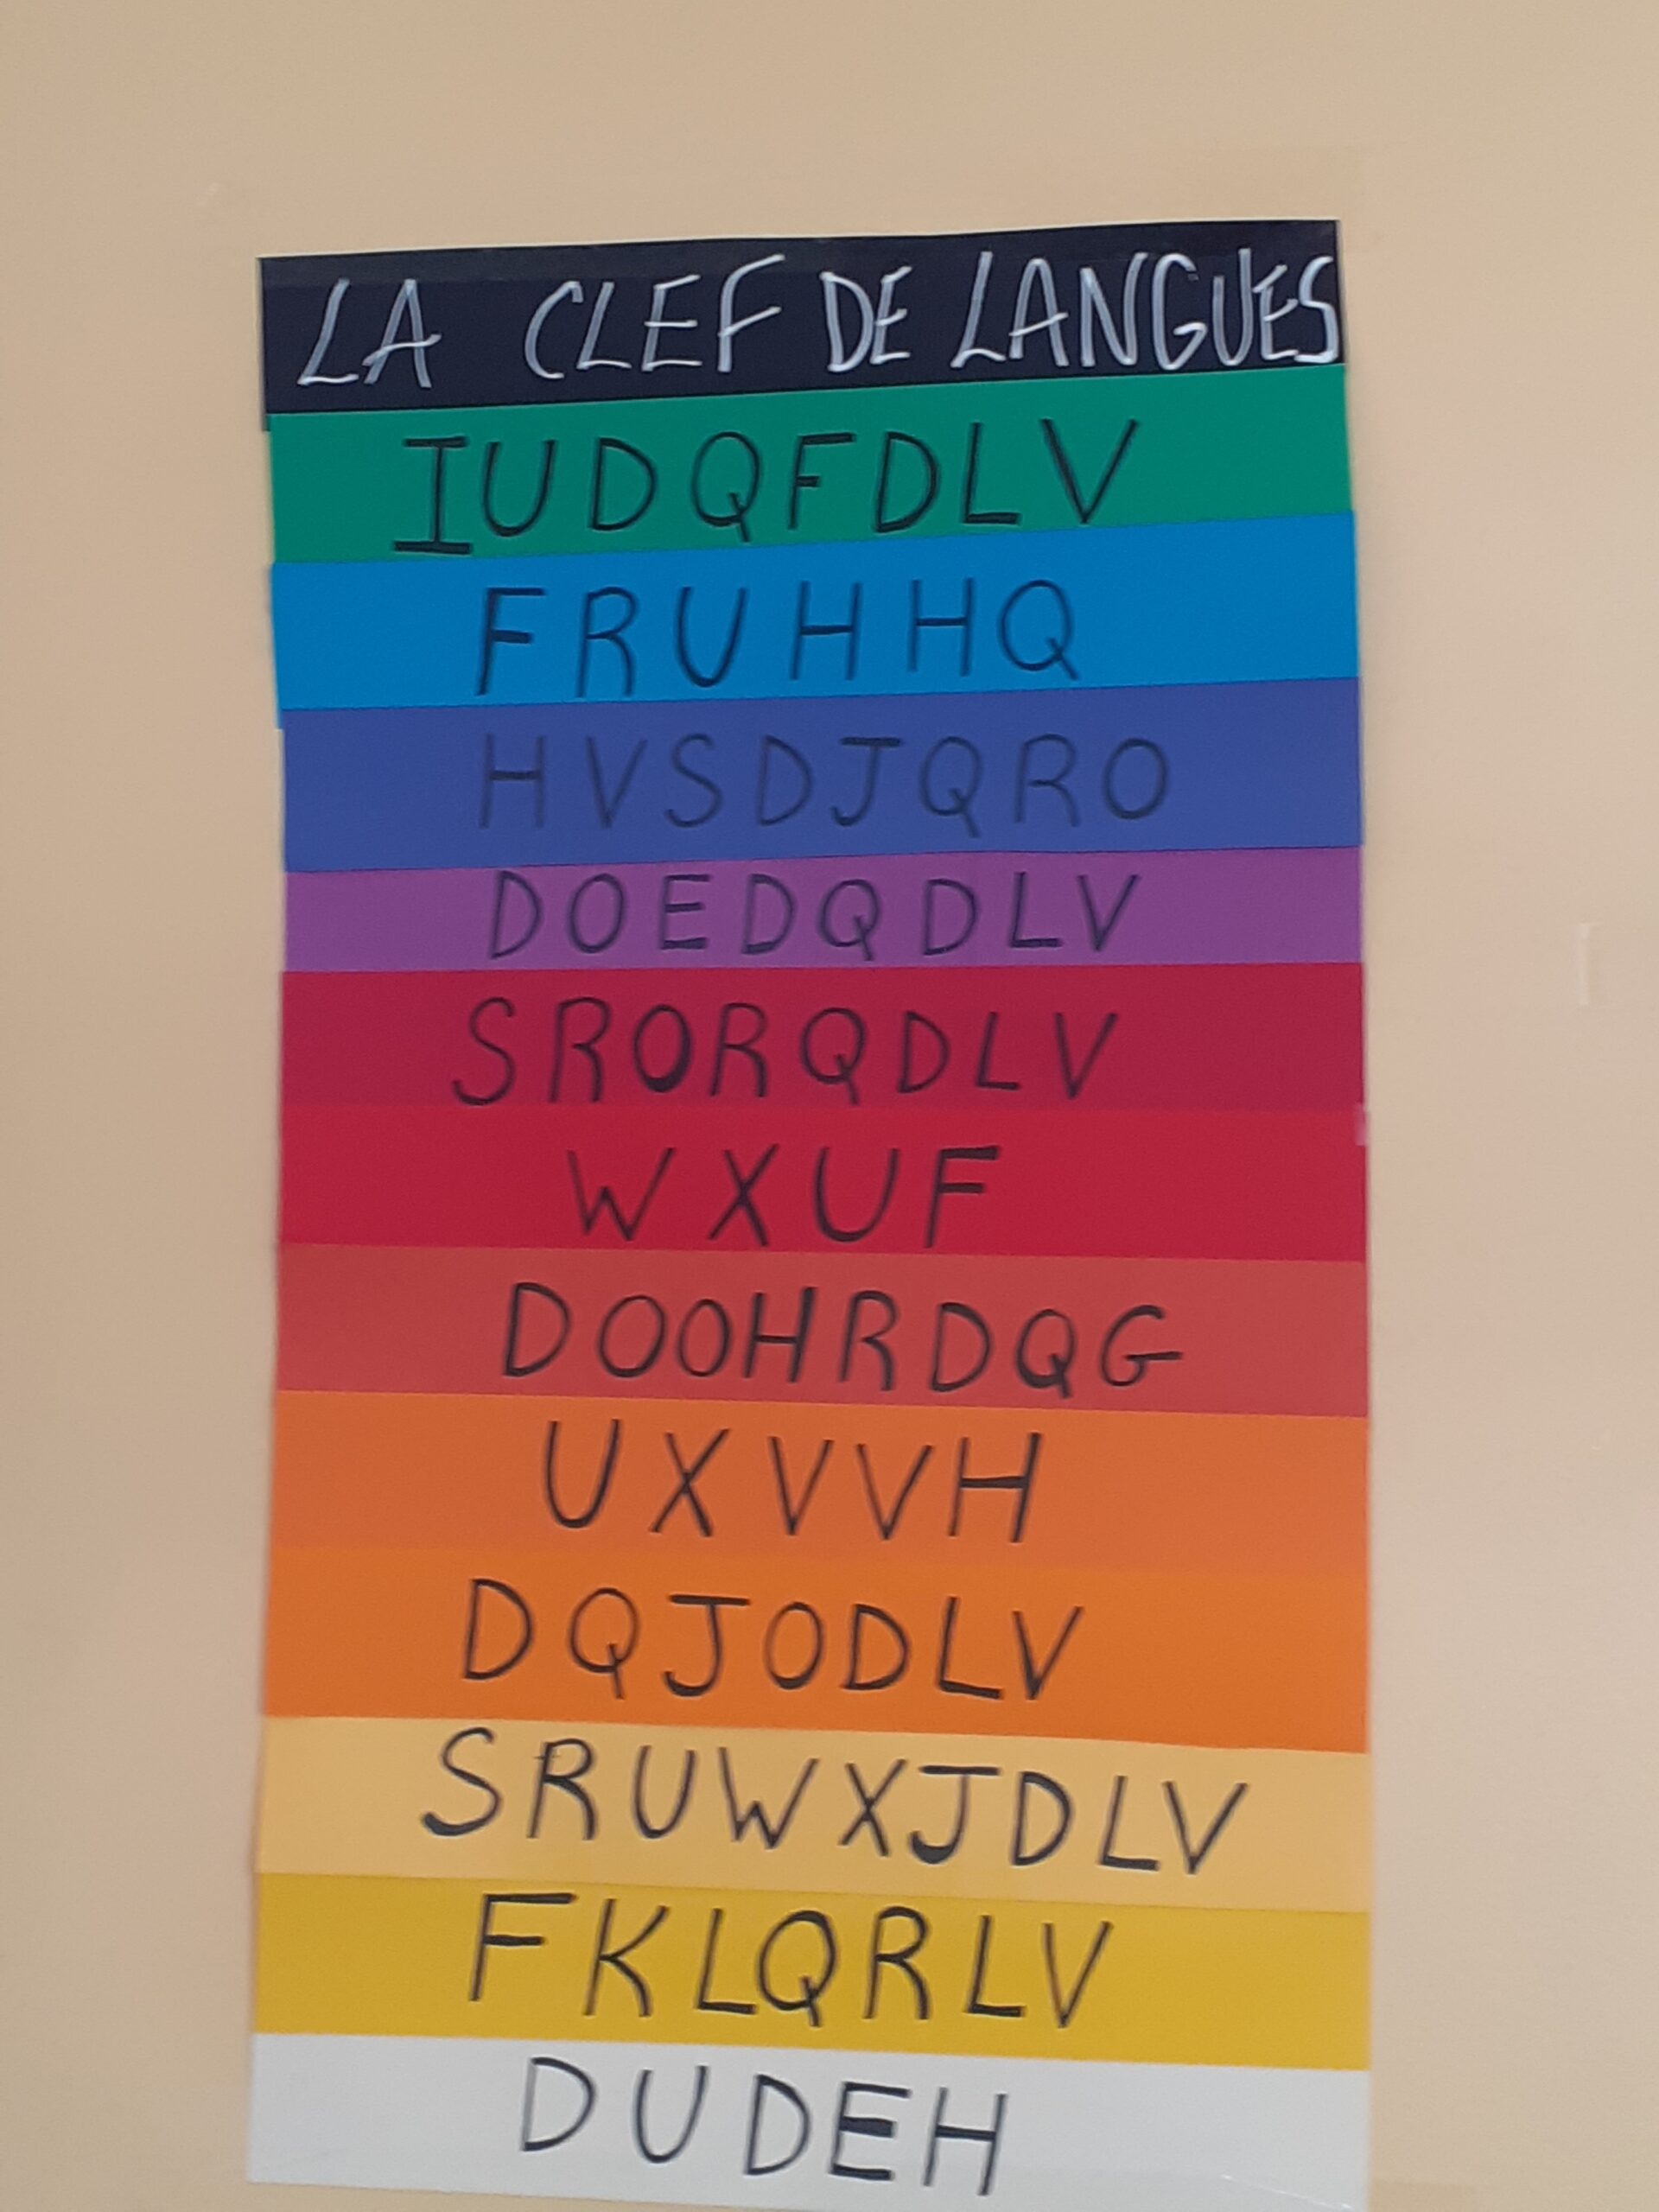 LA CLEF DE LANGUES
IUDQFDLV
FRUHHQ
HVSDJQRO
DOEDQDLV
SRORQDLV
WXUF
DOOHRDQG
UXVVH
DQJODLV
SRUWXJDLV
FKLQRLV
DUDEH